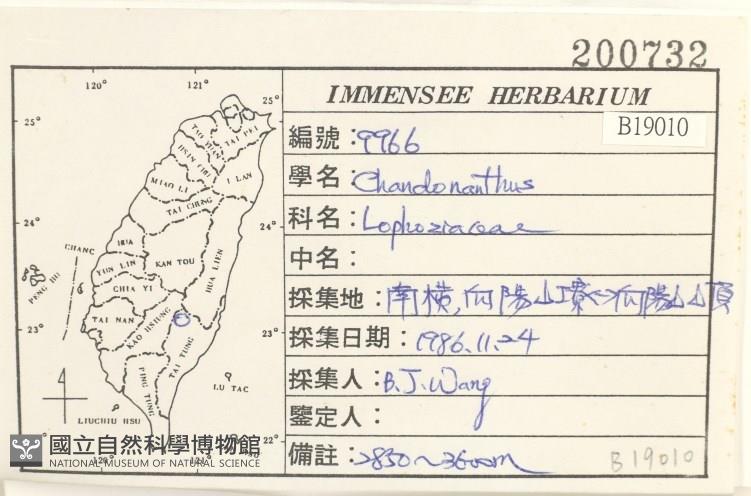 200732
IMMENSEE HERBARIUM
B19010
編號:9966
學名:Chandonanthus
科名:Lophoziaceae
中名:
採集地:南橫,向陽山寮<>向陽山山頂
採集日期:1986.11.24
採集人:B.J.Wang
鑒定人:
備註:2850~3600m
B19010
120° 121°
25° 25°
TAO YUAN
TAI PEI
HSIN CHU
I LAN
MIAO LI
TAI CHUNG
24° 24°
CHANG HUA
HUA LIEN
YUN LIN
NAN TOU
PENG HU
CHIA YI
TAI NAN
KAO HSIUNG
23° 23°
TAI TUNG
PING TUNG
LU TAO
LIUCHIU HSU
22° 22°
120° 121°
國立自然科學博物館
NATIONAL MUSEUM OF NATURAL SCIENCE